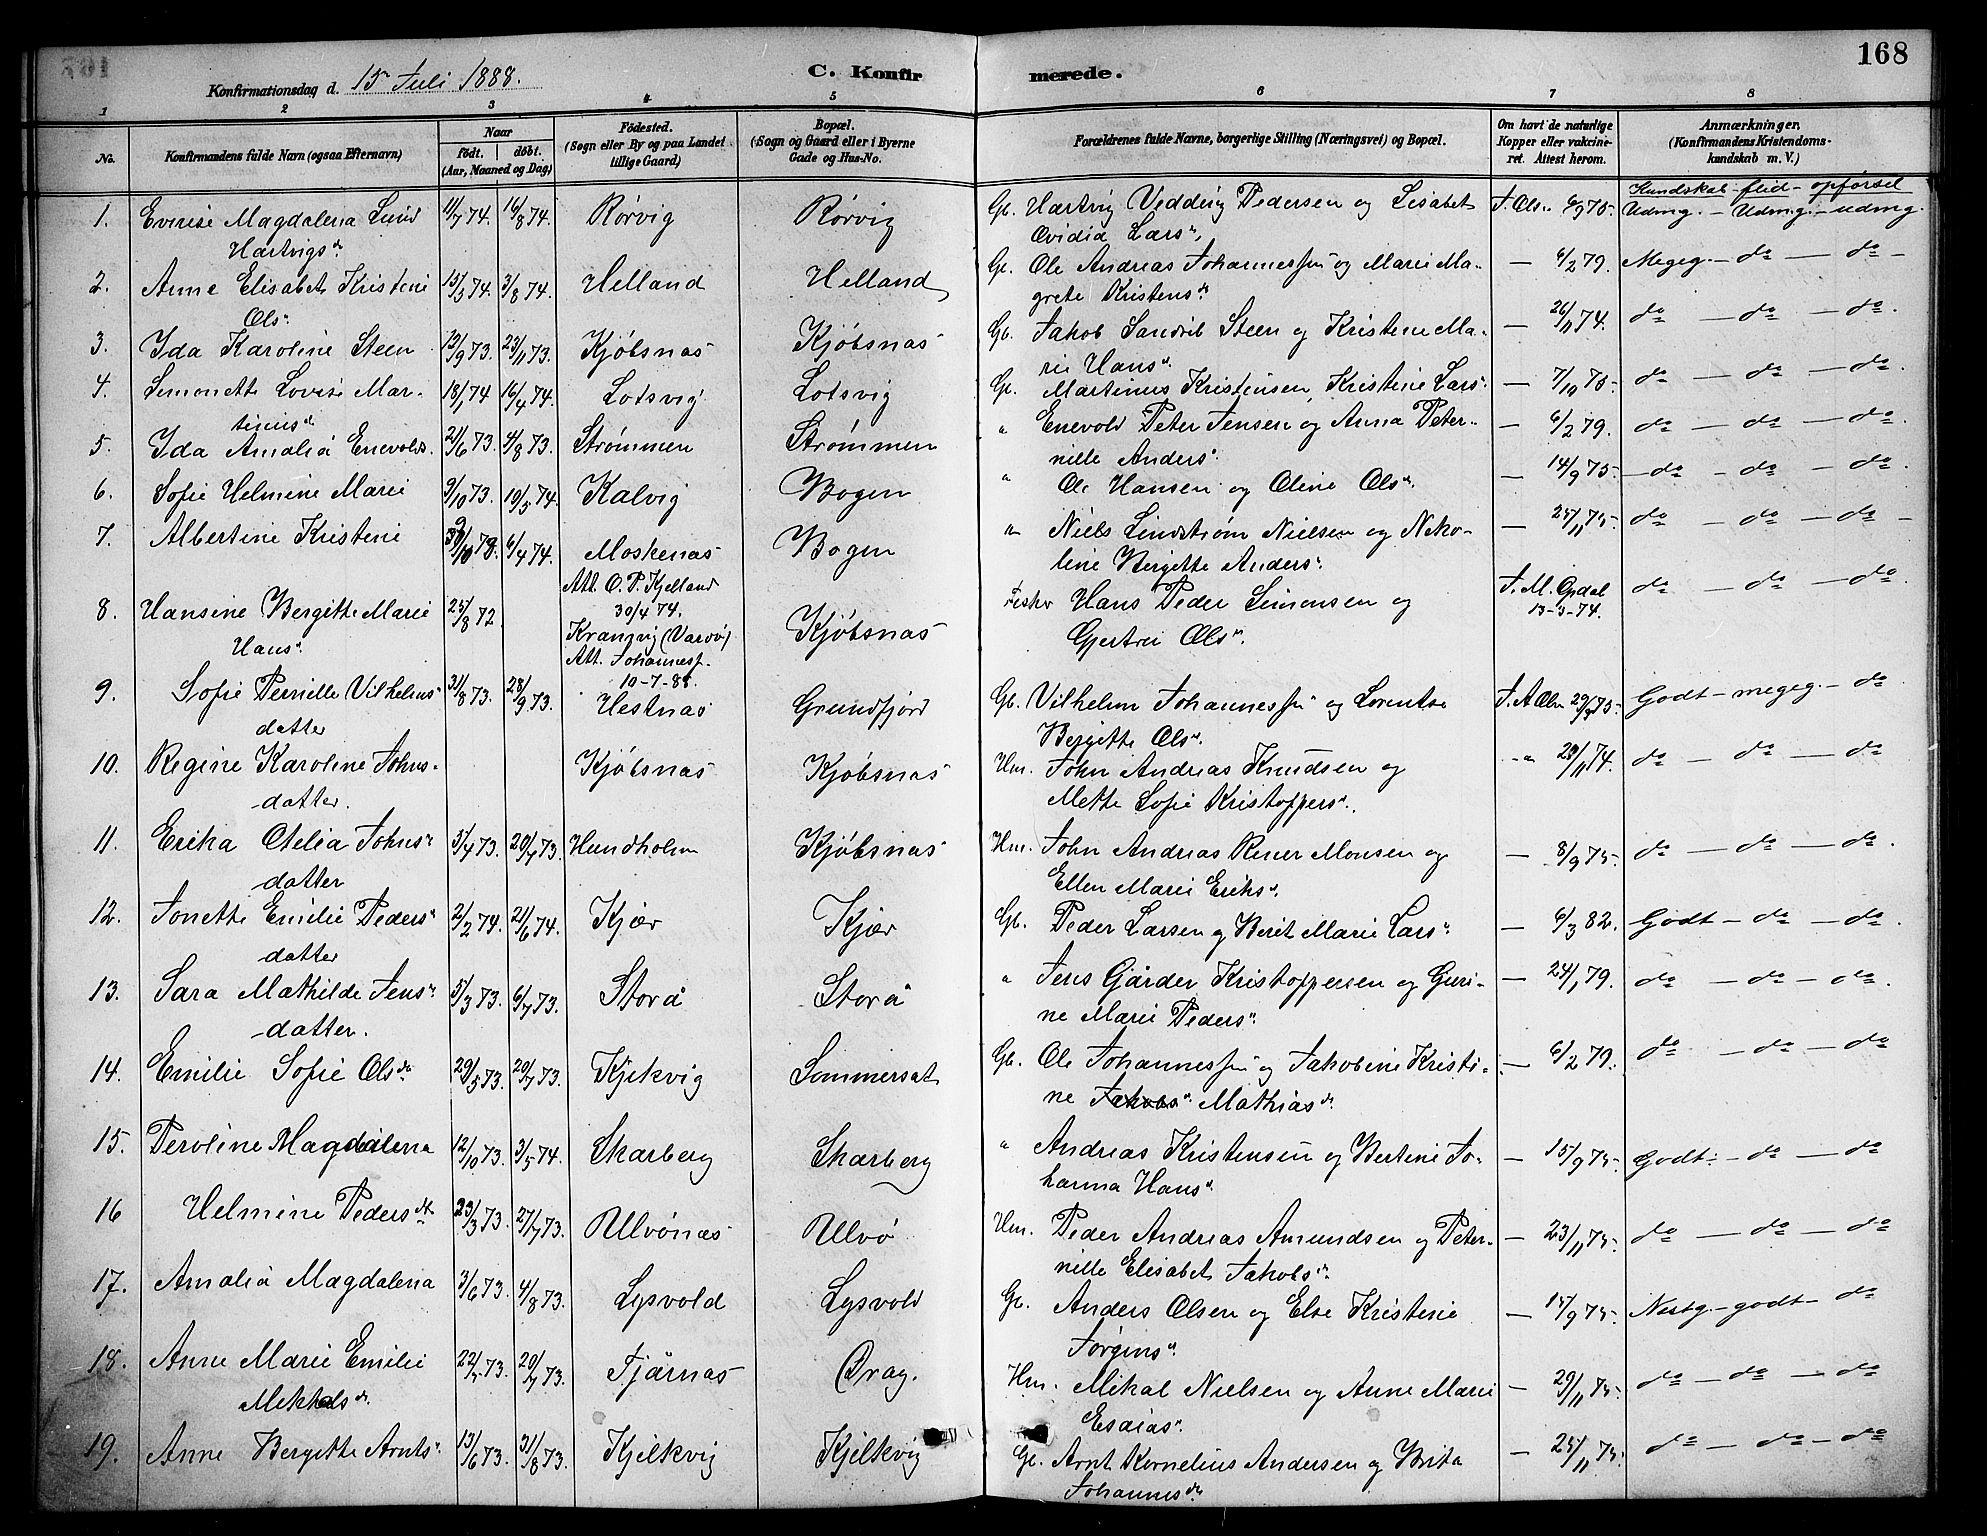 168
Konfirmationsdag d. 15 Juli 1888.
C. Konfirmerede.
1 2 3 4 5 6 7 8
No.
Konfirmandens fulde Navn (ogsaa Efternavn)
Naar
født. døbt.
(Aar, Maaned og Dag)
Fødested.
(Sogn eller By og paa Landet
tillige Gaard)
Bopæl.
(Sogn og Gaard eller i Byerne
Gade og Hus-No.
Forældrenes fulde Navne, borgerlige Stilling (Næringsvei) og Bopæl.
Om havt de naturlige
Kopper eller vakcine-
ret. Attest herom.
Anmærkninger.
(Konfirmandens Kristendoms-
kundskab m. V.)
Kundskab - flid - opførsel
1. Magdalena Lund 11/7 74. 16/8 74. Rørvig Rørvig Gb. Hartvig Vedding Pedersen og Lisabet J. Ols. Udmg. - Udmg. - udmg.
Hartvigsdr. Ovidia Lars",
2. Anne Elisabet Kristine 3/8 74. Helland Helland Gb. Ole Andreas Johannessen og Marie Ma- — 6/2 79. Megeg. - do - do -
Ols". grete Kristensdr.
3. Ida Karoline Steen 13/9 73. 23/11 73. Kjøbsnæs Kjøbsnæs Gb. Jakob Steen og Kristine Ma- — 26/11 74. do - do - do.
rie Hans".
4. Simonette Lovise Mar- 18/1 74 16/4 74. Lotsvig Lotsvig Gb. Martinus Kristensen, Kristine Lars". — 7/10 75. do - do - do
tinusdr.
5. Ida Amalia Enevolds. 21/6 73. 4/8 73. Strømmen Strømmen " Enevold Peter Jensen og Anna Peter- — 6/2 79. do - do - do.
nille Anders".
6. Sofie Helmine Marie 9/10 73. 19/5 74. Kalvig Bogen " Ole Hansen og Oline Ols". — 14/9 75. do - do - do.
7. Albertine Kristine 6/4 74. Moskenæs Bogen " Niels Lindstrøm Nielsen og Niko- — 25/11 75. do - do - do -
Att. O. P. Kjelland line Bergitte Anders".
30/4 74.
8. Hansine Bergitte Marie 25/8 72. (Værøy) Kjøbsnæs Fisker Hans Peder Simonsen og J. M. Opdal do - do - do
Hans". Att. Johannes. Gjertru Ols". 13-3-74.
10-7-88.
9. Sofie Pernille Vilhelms" 31/8 73. 28/9 73. Hestnæs Grundfjord Gb. Vilhelm Johannessen og Lorentse Godt - megeg. - do
datter Bergitte Ols".
10. Regine Karoline Johns- Kjøbsnæs Kjøbsnæs Hm. John Andreas Knudsen og " 29/11 74. do - do - do
datter. Mette Sofie Kristoffers".
11. Erika Otelia Johns" 5/4 73. 20/7 73. Hundholm Kjøbsnæs Hm. John Andreas Monsen og — 8/9 75. do - do - do.
datter Ellen Marie Eriks".
12. Jonette Emilie Peders" 2/2 74. 21/6 74. Kjær Kjær Gb. Peder Larsen og Berit Marie Lars". — 6/3 82. Godt - do - do.
datter
13. Sara Mathilde Jens" 5/3 73. 6/7 73. Storå Storå " Jens Gjärder Kristoffersen og Guri- — 24/1 79. do - do - do.
datter. ne Marie Peders".
14. Emilie Sofie Olsdr. 29/5 73. 20/7 73. Kjelkvig Sommerset Gb. Ole Johannessen og Jakobine Kristi- — 6/2 79. do - do - do
ne Jakobs". Mathiasdr.
15. Peroline Magdalena 12/10 73. 3/5 74. Skarberg Skarberg " Andreas Kristensen og Bertine Jo- — 15/9 75. Godt. - do - do
hanna Hans".
16 Helmine Pedersdt. 23/3 73. 27/7 73. Ulvønæs Ulvø Hm. Peder Andreas Amundsen og Peter- — 23/11 75. do - do - do
nille Elisabet Jakobsdr.
17. Amalia Magdalena 3/6 73. 4/8 73. Lysvold Lysvold Gb. Anders Olsen og Else Kristine — 15/9 75. Nestg. - godt - do
Jørgens".
18. Anne Marie Emilie 20/7 73. Tjärnæs Drag. Hm. Mikal Nielsen og Anne Marie — 29/11 75. do - do - do
Mikkalsdr. Esaias".
19. Anne Bergitte Arnts". 13/6 73. 31/8 73. Kjelkvig Kjelkvig Gb. Arnt Kornelius Andersen og Brita — 25/11 75. do - do - do
Johannesdr.